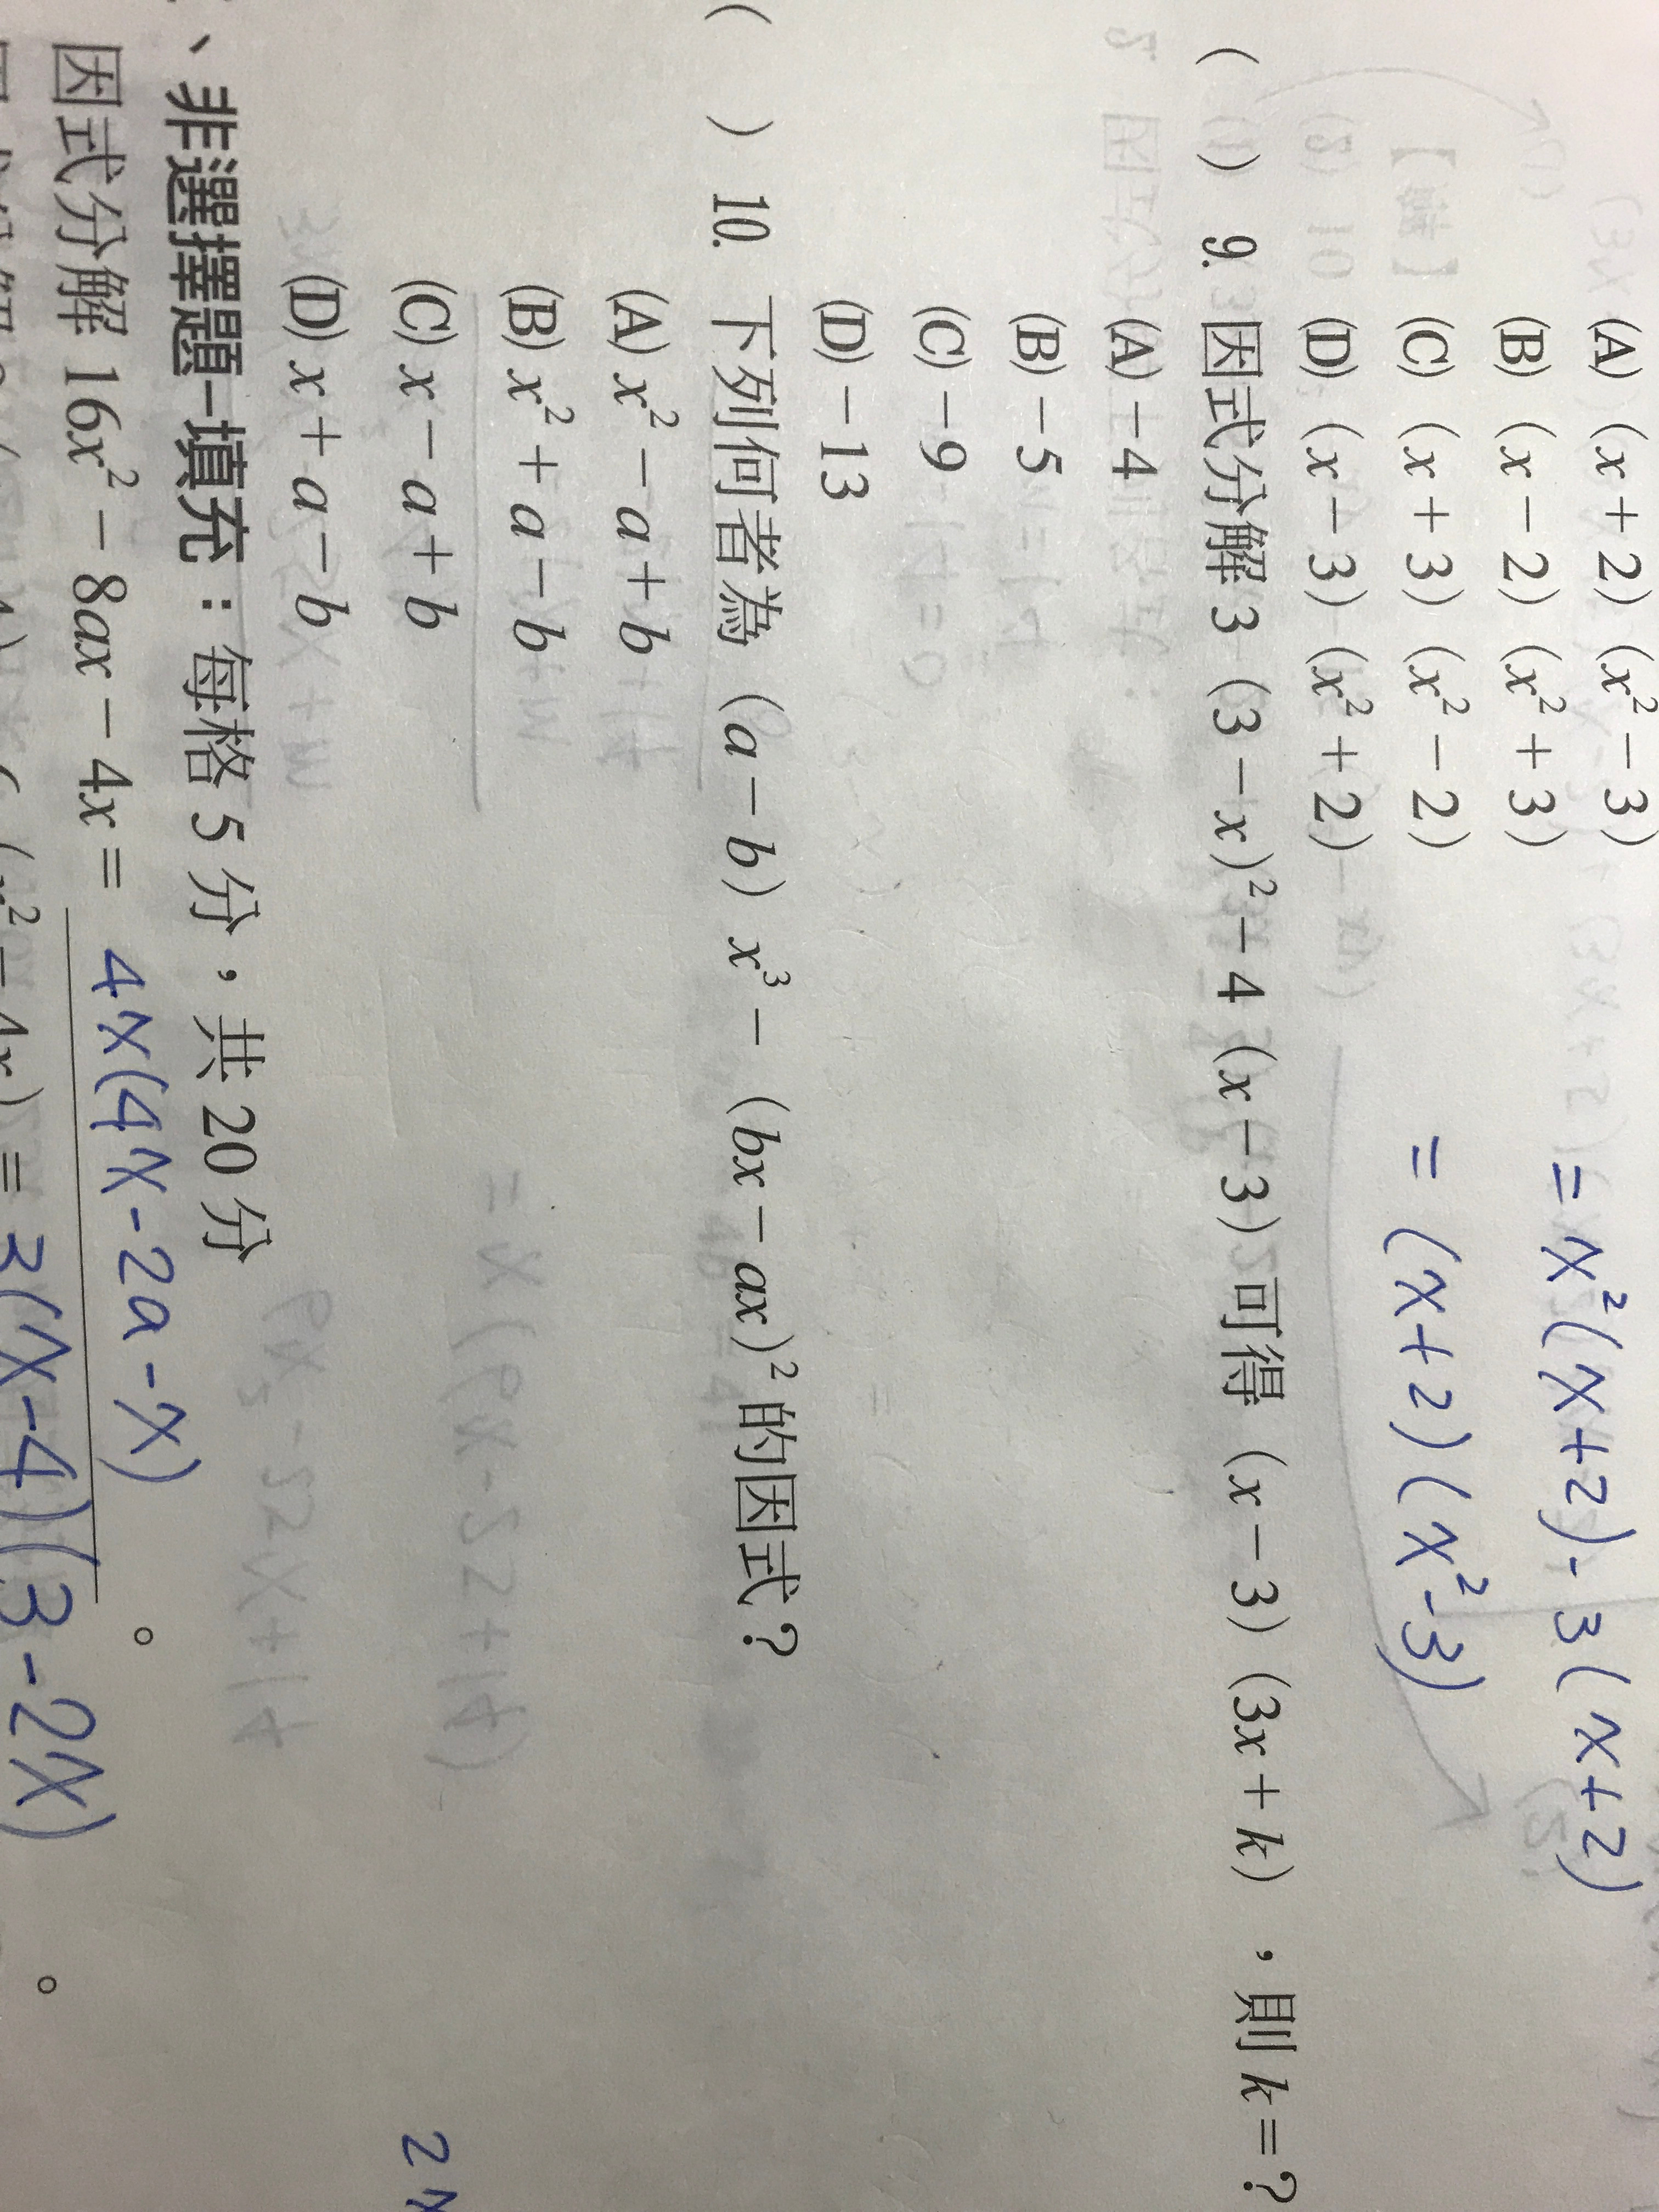 (A)(x+2)(x²-3)
= x²(x+2)-3(x+2)
(B)(x-2)(x²+3)
(C)(x+3)(x²-2)
= (x+2)(x²-3)
(D)(x-3)(x²+2)
( ) 9. 因式分解3(3-x)²+4(x-3)可得(x-3)(3x+k),則k=?
(A)-4
(B)-5
(C)-9
(D)-13
( ) 10. 下列何者為(a-b)x³-(bx-ax)²的因式?
(A) x²-a+b
(B) x²+a-b
(C) x-a+b
(D) x+a-b
、非選擇題-填充:每格5分,共20分
因式分解16x²-8ax-4x= 4x(4x-2a-x)。
(x²-4x)= 3(x-4)(3-2x)。